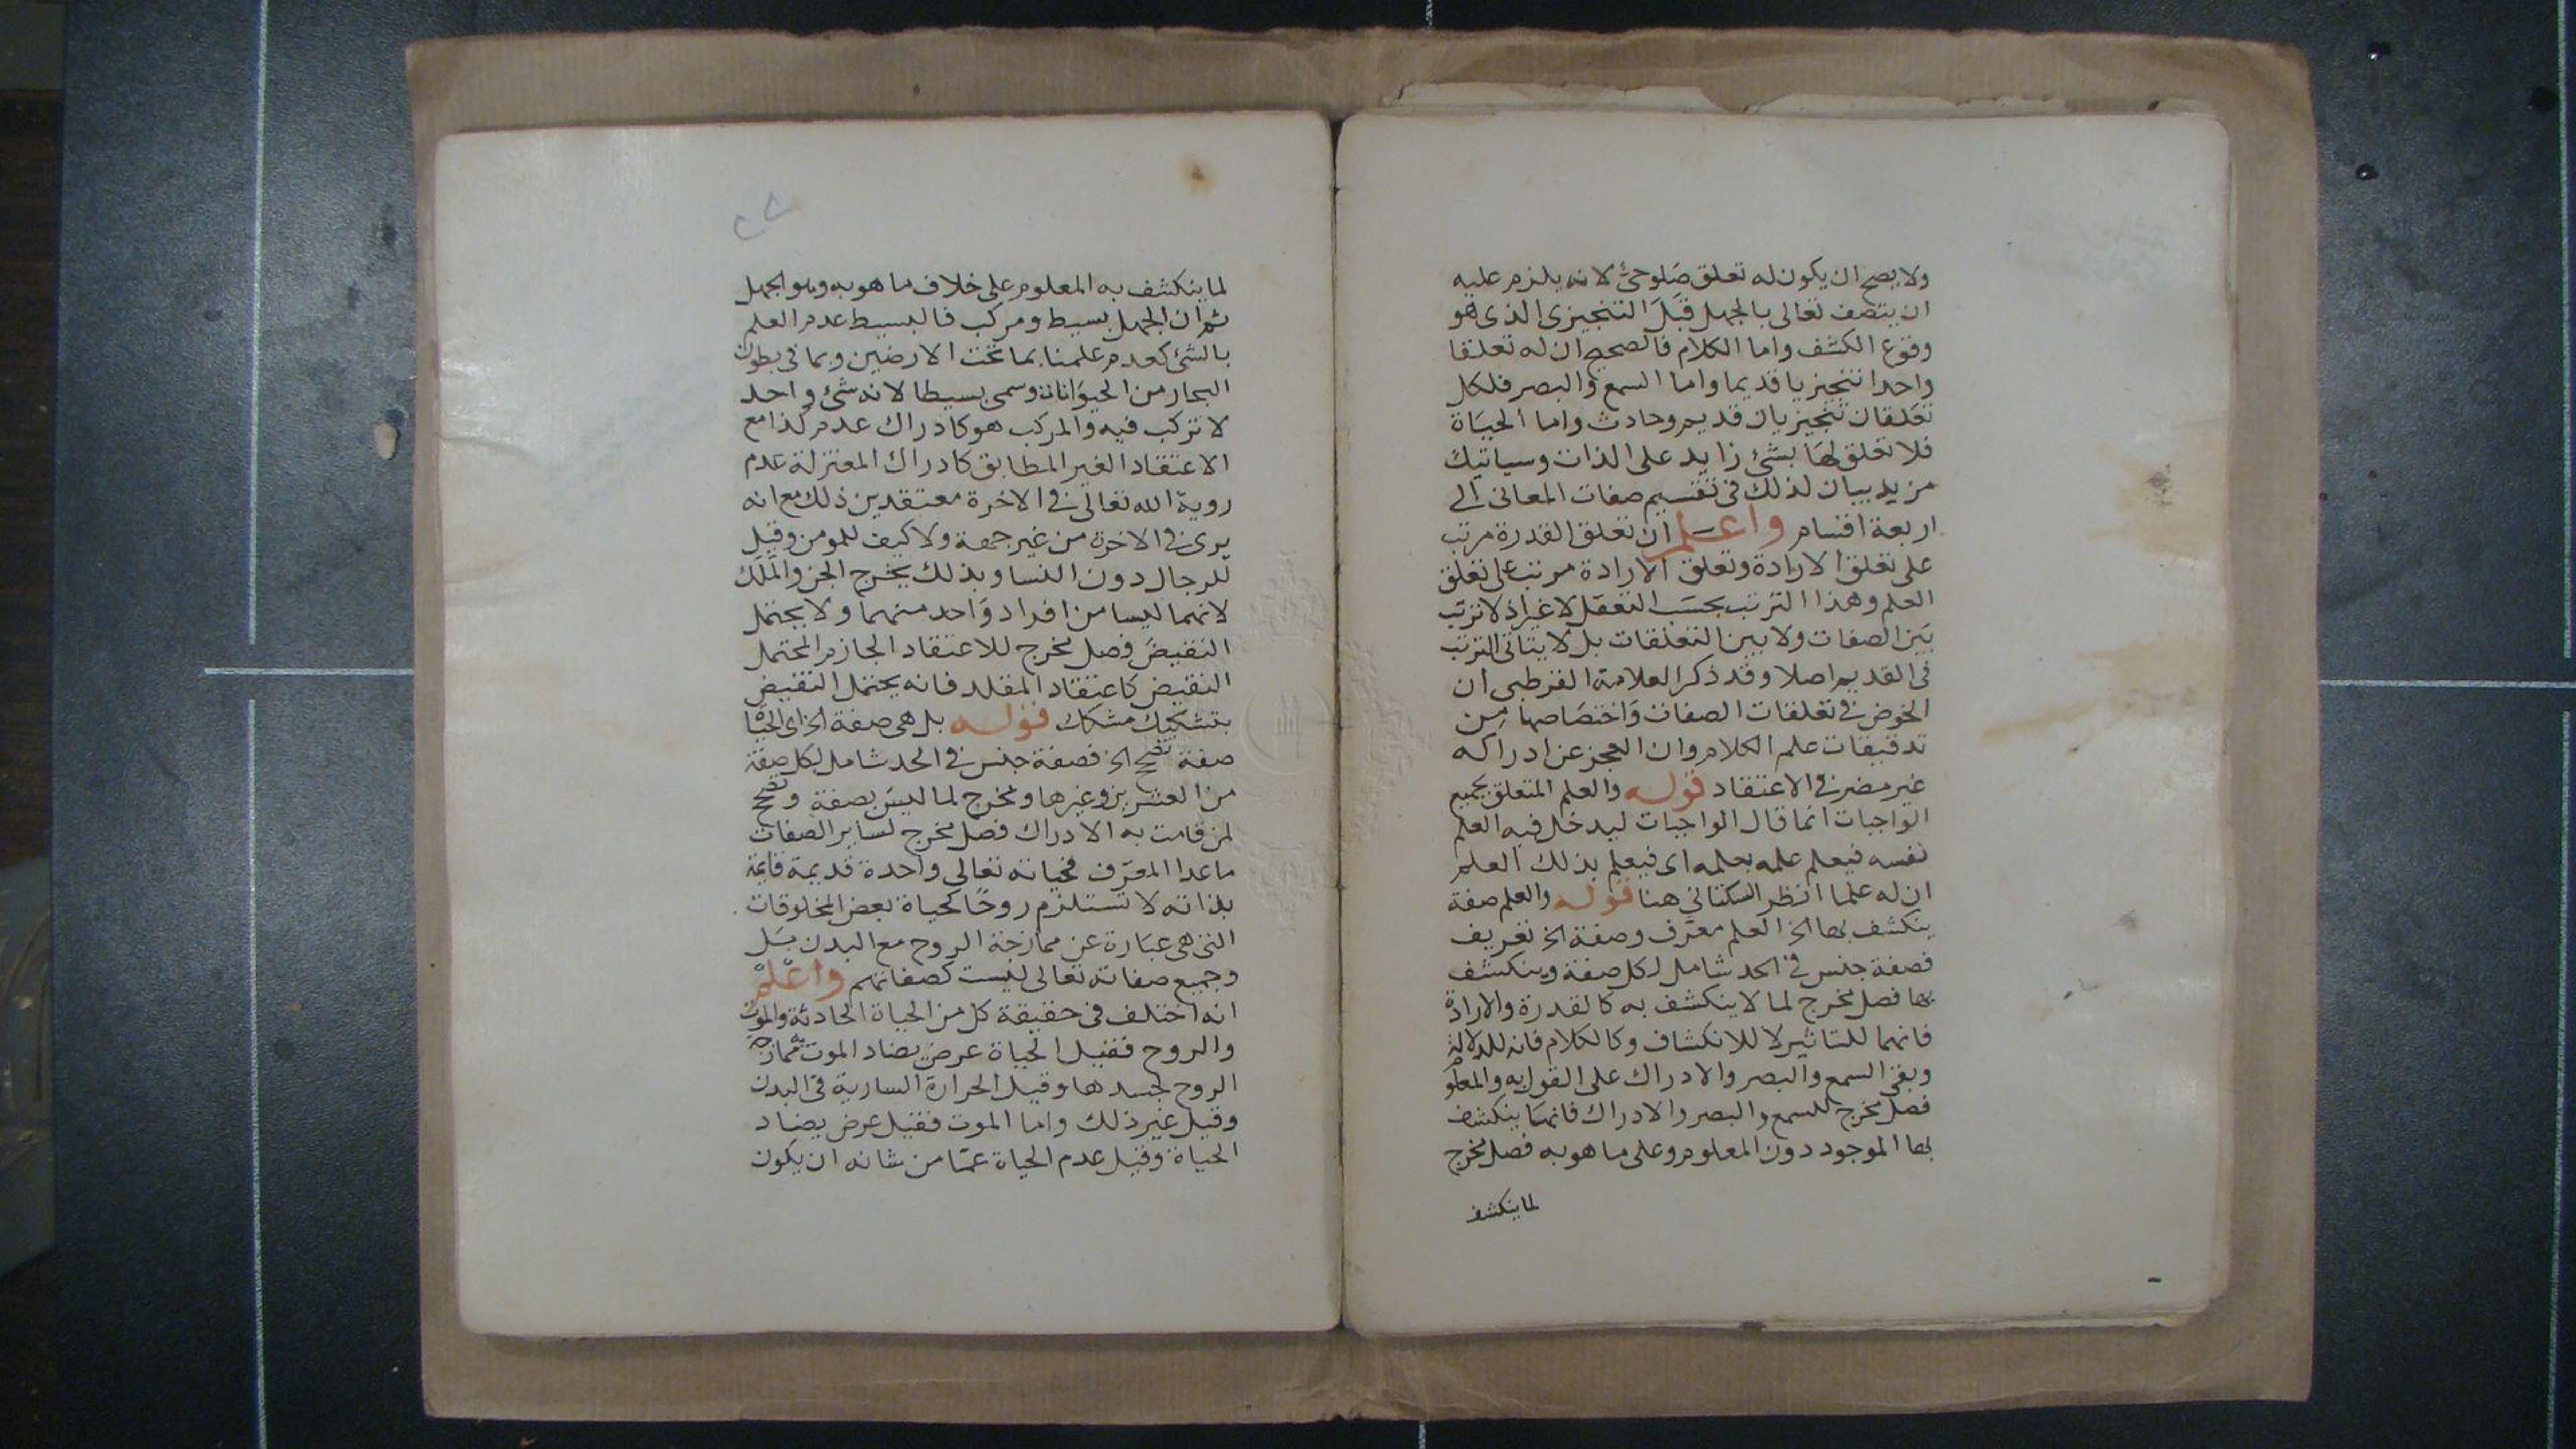 ولا يصح ان يكون له تعلق صلوحىّ لانه يلزم عليه
ان يتصف تعالى بالجهل قبل التنجيزى الذى هو
وقوع الكشف واما الكلام فالصحيح ان له تعلقا
واحدا تنجيزيا قديما واما السمع والبصر فلكل
تعلقان تنجيزيان قديم وحادث واما الحياة
فلا تعلق لها بشئ زايد على الذات وسياتيك
مزيد بيان لذلك فى تقسيم صفات المعانى الى
اربعة اقسام واعلم ان تعلق القدرة مرتب
على تعلق الارادة وتعلق الارادة مرتب على تعلق
العلم وهذا الترتب بحسب التعقل لا غير اذ لا ترتب
بين الصفات ولا بين التعلقات بل لا يتاتى الترتب
فى القديم اصلا وقد ذكر العلامة القرطبى ان
الخوض فى تعلقات الصفات واختصاصها من
تدقيقات علم الكلام وان العجز عن ادراكه
غير مضر فى الاعتقاد قوله والعلم المتعلق بجميع
الواجبات انما قال الواجبات ليدخل فيه العلم
نفسه فيعلم علمه بعلمه اى فيعلم بذلك العلم
ان له علما انظر السكتانى هنا قوله والعلم صفة
ينكشف بها الخ العلم معرّف وصفة الخ تعريف
فصفة جنس فى الحد شامل لكل صفة وينكشف
بها فصل مخرج لما لا ينكشف به كالقدرة والارادة
فانهما للتاثير لا للانكشاف وكالكلام فانه للدلالة
وبقى السمع والبصر والادراك على القول به والمعلوم
فصل مخرج للسمع والبصر والادراك فانما ينكشف
بها الموجود دون المعلوم وعلى ما هو به فصل مخرج
لما ينكشف
لما ينكشف به المعلوم على خلاف ما هو به وهو الجهل
ثم ان الجهل بسيط ومركب فالبسيط عدم العلم
بالشئ كعدم علمنا بما تحت الارضين وبما فى بطون
البحار من الحيوانات وسمى بسيطا لانه شئ واحد
لا تركب فيه والمركب هو كادراك عدم كذا مع
الاعتقاد الغير المطابق كادراك المعتزلة عدم
روية الله تعالى فى الاخرة معتقدين ذلك مع انه
يرى فى الاخرة من غير جهة ولا كيف للمومن وقيل
للرجال دون النسا وبذلك يخرج الجن والملك
لانهما ليسا من افراد واحد منهما ولا يحتمل
النقيض فصل مخرج للاعتقاد الجازم المحتمل
النقيض كاعتقاد المقلد فانه يحتمل النقيض
بتشكيك مشكك قوله بل هى صفة الخ اى الحياة
صفة تصحح الخ فصفة جنس فى الحد شامل لكل صفة
من العشرين وغيرها ومخرج لما ليس بصفة وتصحح
لمن قامت به الادراك فصل مخرج لساير الصفات
ما عدا المعرّف فحياته تعالى واحدة قديمة قايمة
بذاته لا تستلزم روحًا كحياة بعض المخلوقات
التى هى عبارة عن ممازجة الروح مع البدن بل
وجميع صفاته تعالى ليست كصفاتهم واعلم
انه اختلف فى حقيقة كل من الحياة الحادثة والموت
والروح فقيل الحياة عرض يضاد الموت ممازجة
الروح لجسدها وقيل الحرارة السارية فى البدن
وقيل غير ذلك واما الموت فقيل عرض يضاد
الحياة وقيل عدم الحياة عمّا من شانه ان يكون